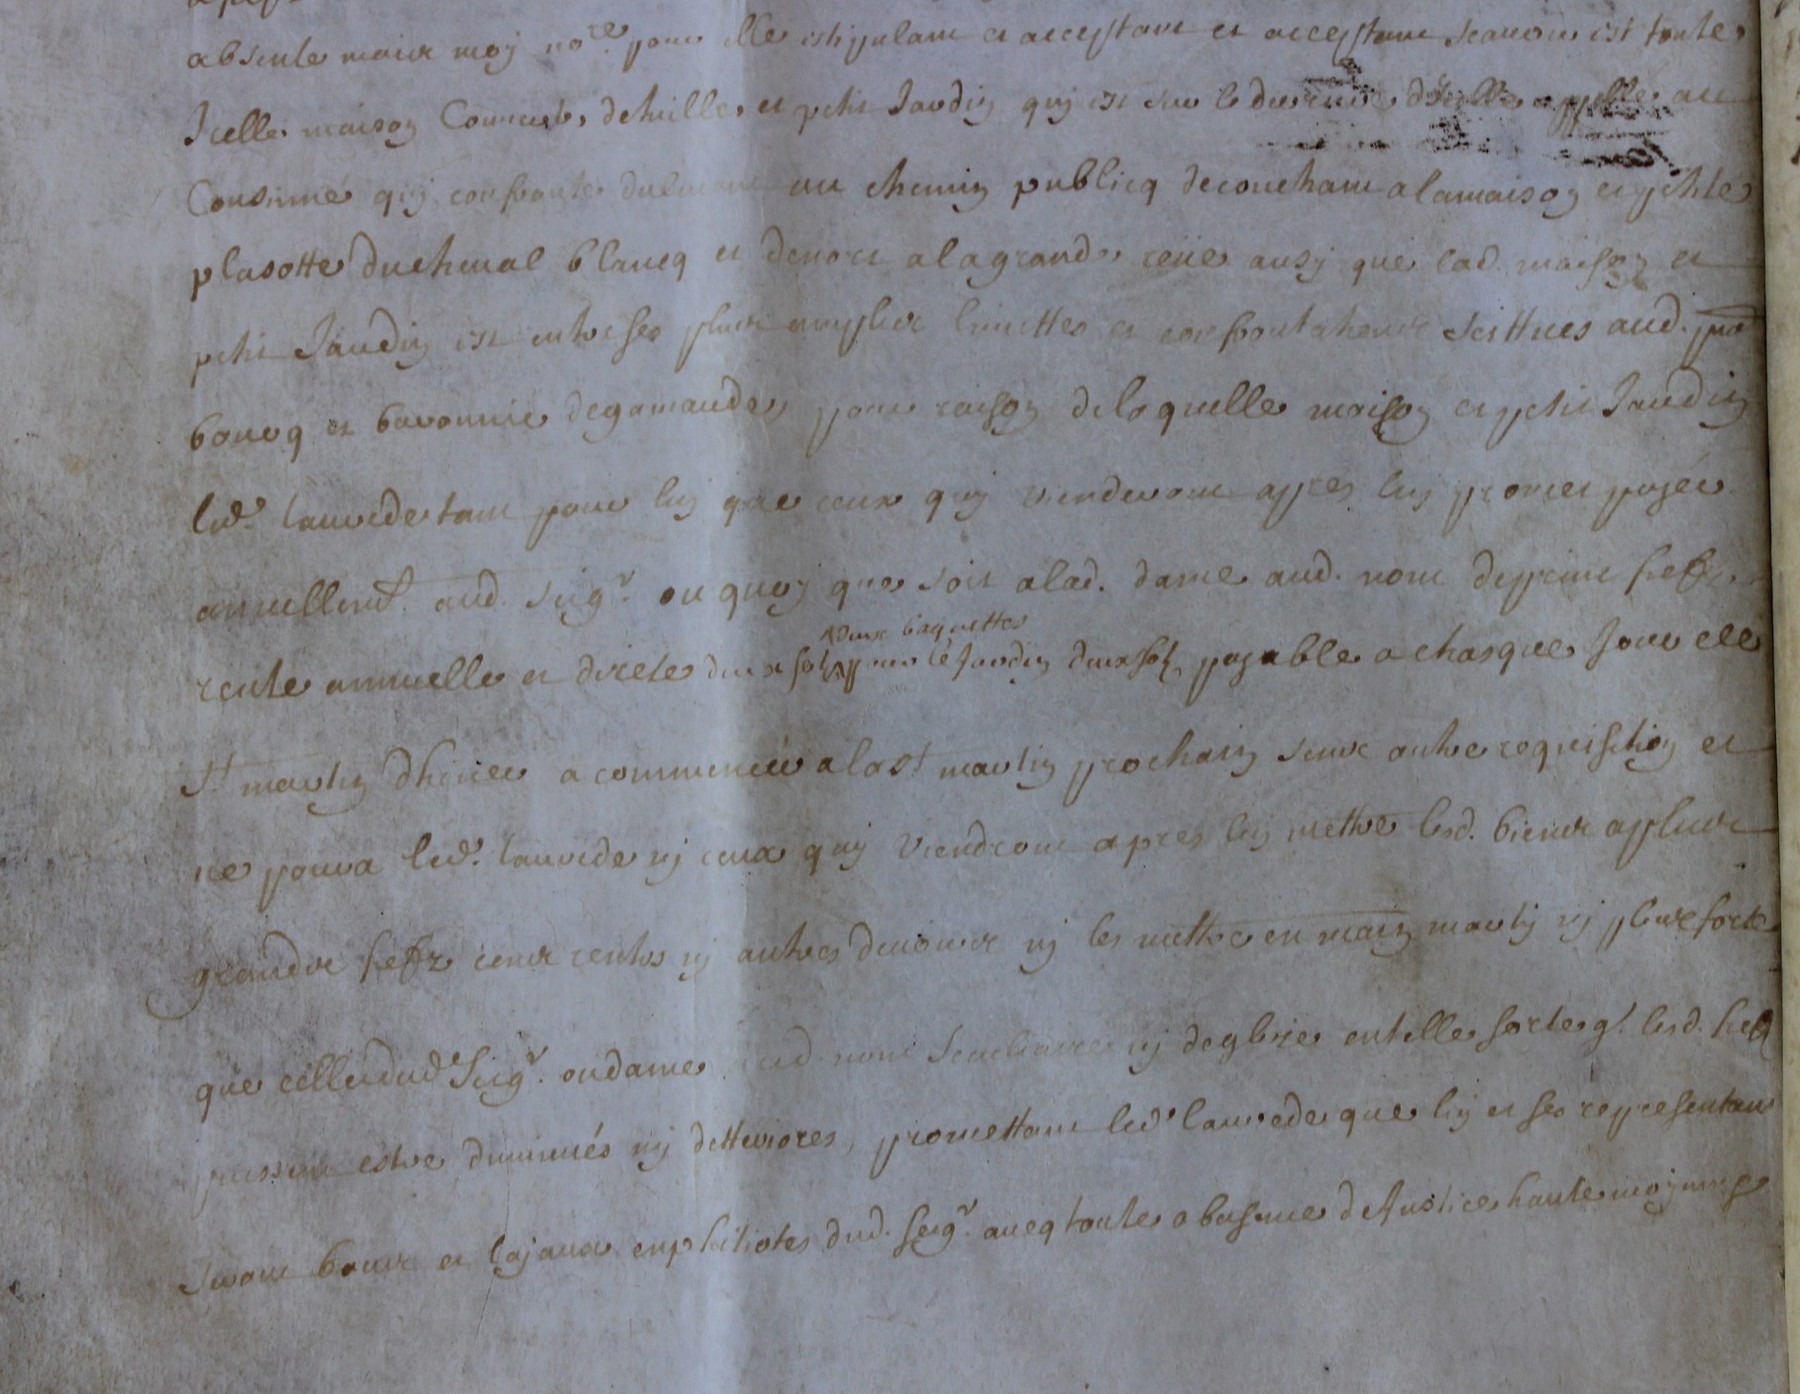 absente mais moy no.re pour elle estipulant et acceptant et acceptant scavoir est toute
Icelle maison Couverte de tuille et petit Jardin quy est sur le derriere d'icelle appellé au
Consirmé quy confronte du levant au chemin publicq de couchant a la maison et petite
plasotte du cheval blancq et de nort a la grande reue ausy que lad. maison et
petit Jardin est entre ses plus amples limittes et confrontations scittues aud. pnt
bourg et baronnie de gamarde, pour raison de laquelle maison et petit Jardin
led. laurede tant pour luy que ceux quy viendront appres luy promet payer
annuellemt. aud. seigr. ou quoy que soit a lad. dame aud. nom de prime feffz
rente annuelle et directe deux solz pour le Jardin deux solz payable a chasque Jour et fe
deux baquettes
St. martin dhiver a commencer a la st. martin prochain sans autre requisition et
ne pourra led. laurede ny ceux quy viendront apres luy mettre lesd. biens a plus
grands feffz cens rentes ny autres devoirs ny les mettre en main morte ny plus forte
que celle dud. Seigr. ou dame aud. nom seculiere ny deglise en telle sorte q. lesd. feffz
puissent estre diminués ny detteriores, promettant led. laurede que luy et ses representans
seront bons et loyaux emphitiotes dud. seigr. avecq toute obeisence de Justice haute moyenne